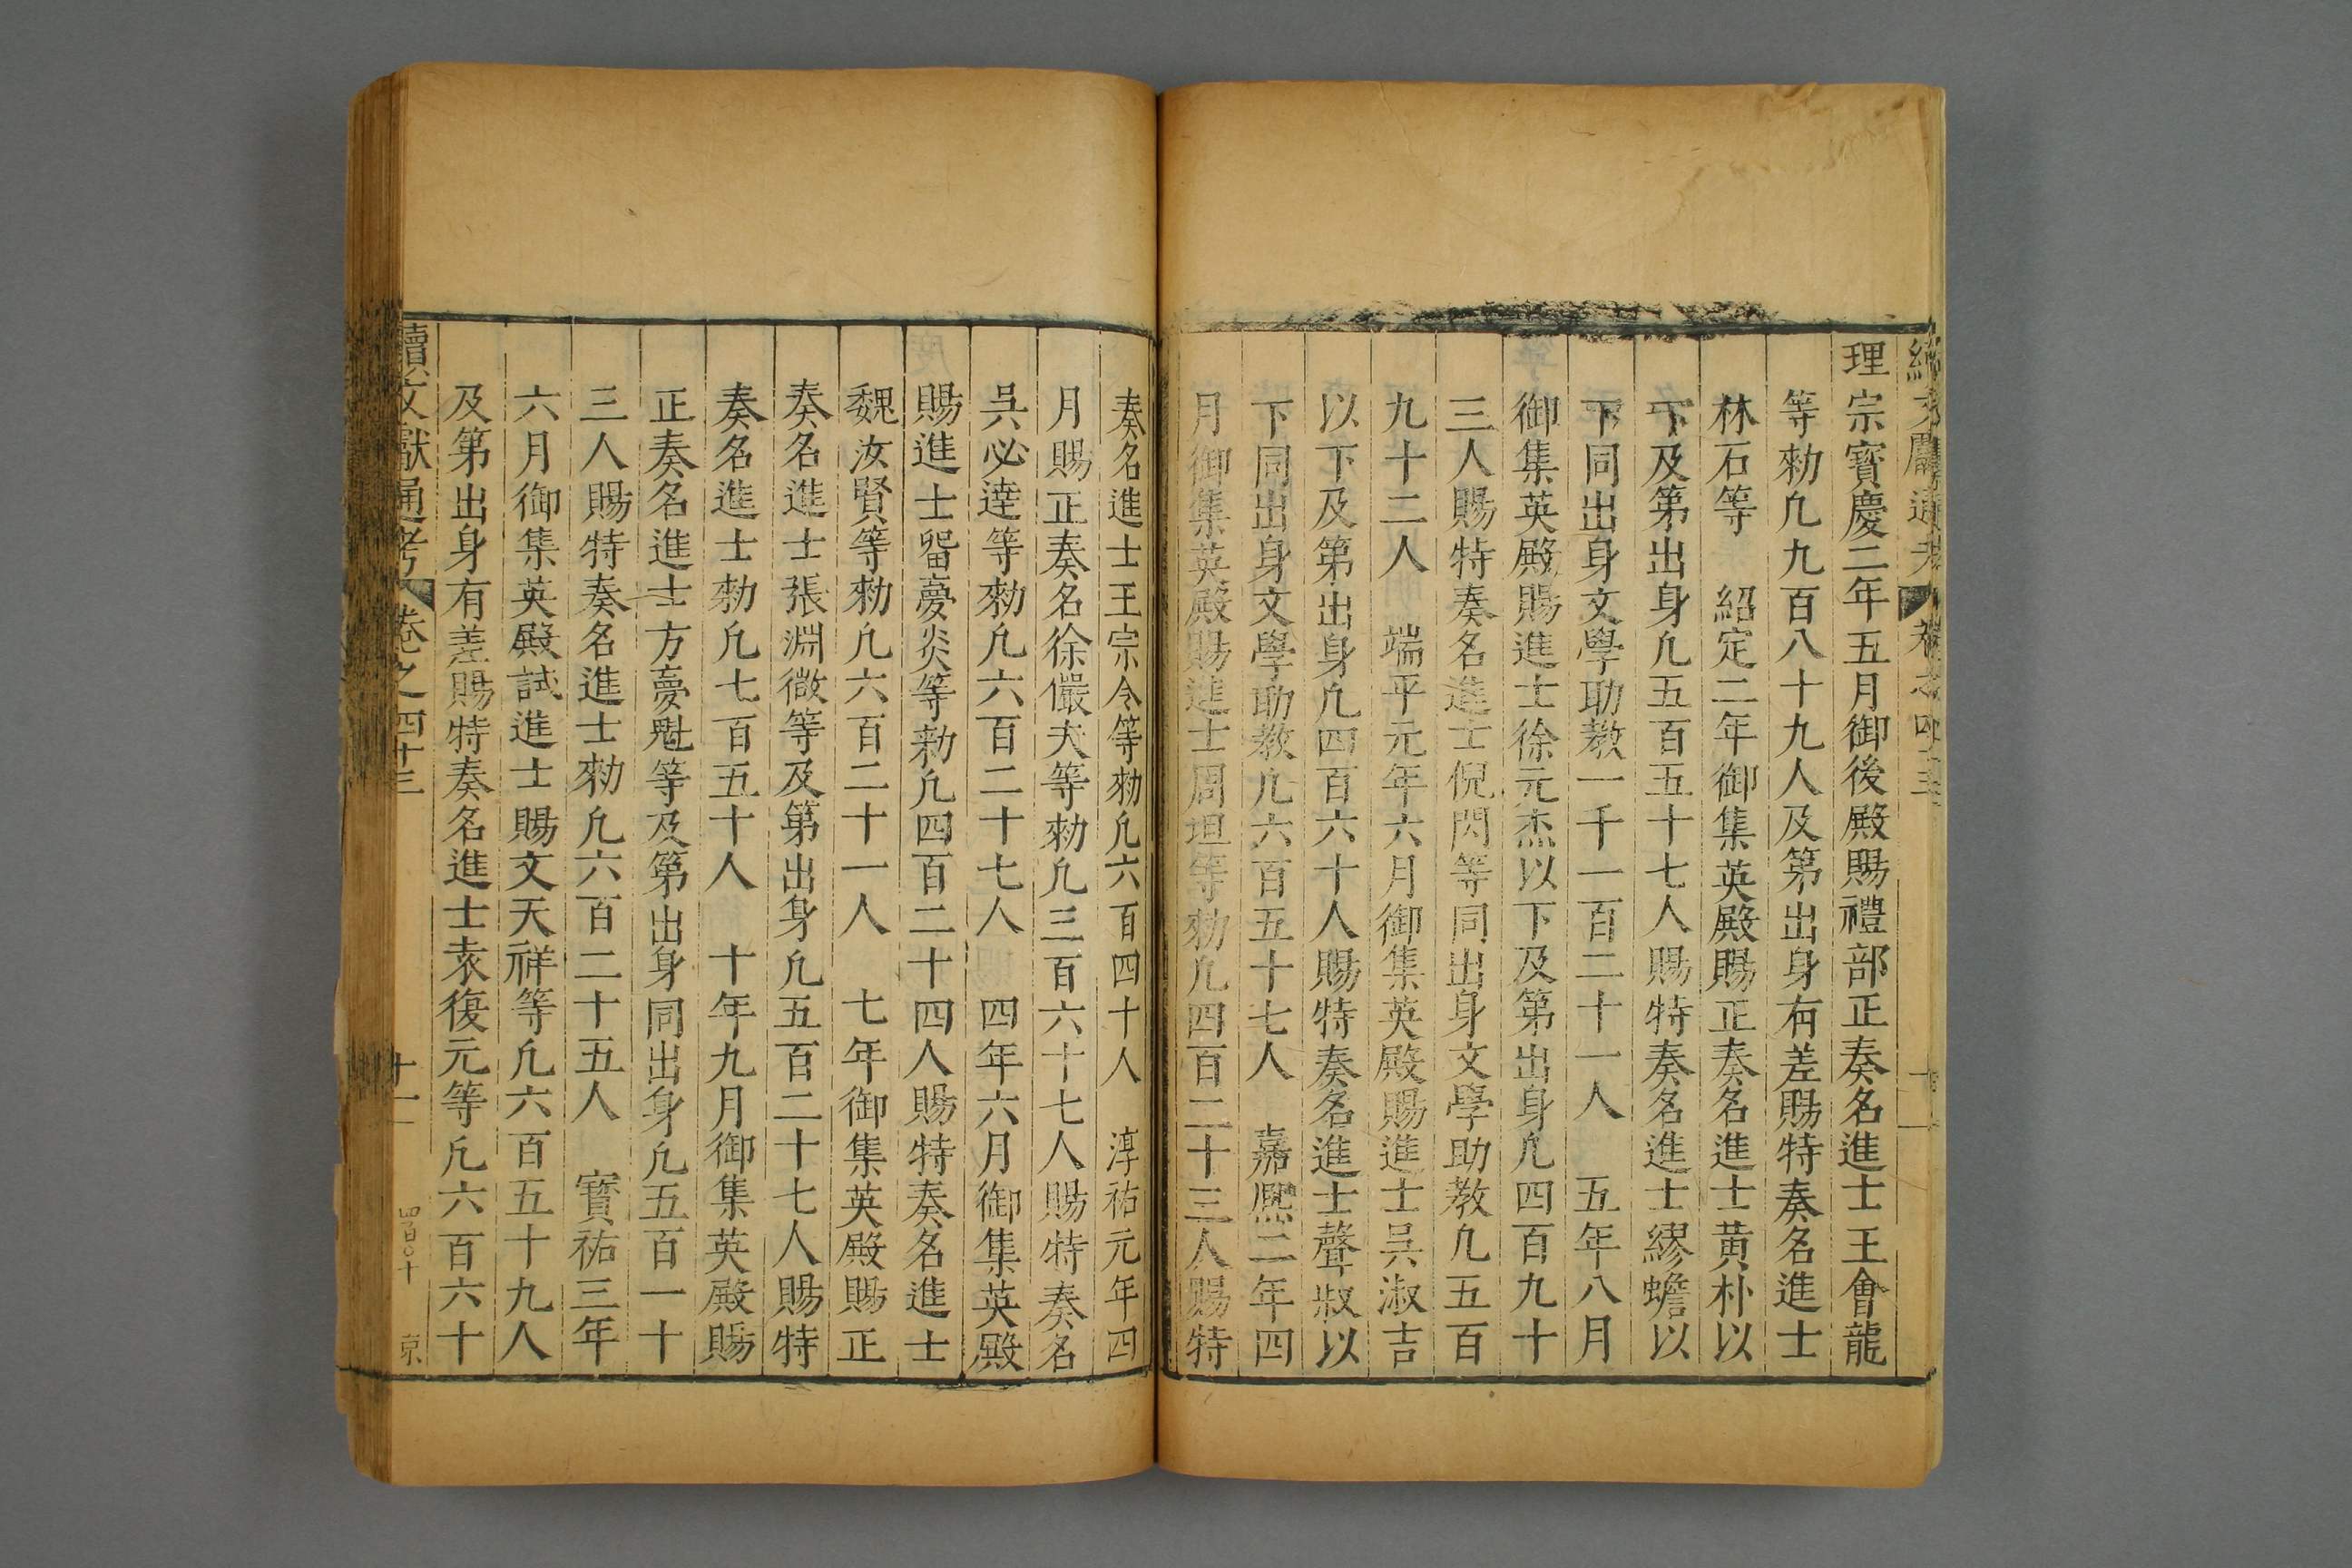 續文獻通考 卷之四十三
理宗寳慶二年五月御後殿賜禮部正奏名進士王會龍
等勑凢九百八十九人及第出身有差賜特奏名進士
林石等 紹定二年御集英殿賜正奏名進士黃朴以
下及第出身凢五百五十七人賜特奏名進士繆蟾以
下同出身文學助敎一千一百二十一人 五年八月
御集英殿賜進士徐元杰以下及第出身凢四百九十
三人賜特奏名進士倪閃等同出身文學助教凢五百
九十二人 端平元年六月御集英殿賜進士吳淑吉
以下及第出身凢四百六十人賜特奏名進士聲淑以
下同出身文學助敎凢六百五十七人 嘉熈二年四
月御集英殿賜進士周坦等勑凢四百二十三人賜特
奏名進士王宗令等勑凢六百四十人 淳祐元年四
月賜正奏名徐儼夫等勑凢三百六十七人賜特奏名
吳必逹等勑凢六百二十七人 四年六月御集英殿
賜進士畱夢炎等勑凢四百二十四人賜特奏名進士
魏汝賢等勑凢六百二十一人 七年御集英殿賜正
奏名進士張淵微等及第出身凢五百二十七人賜特
奏名進士勑凢七百五十人 十年九月御集英殿賜
正奏名進士方夢魁等及第出身同出身凢五百一十
三人賜特奏名進士勑凢六百二十五人 寳祐三年
六月御集英殿試進士賜文天祥等凢六百五十九人
及第出身有差賜特奏名進士袁復元等凢六百六十
續文獻通考 卷之四十三 十一 四百〇十 京